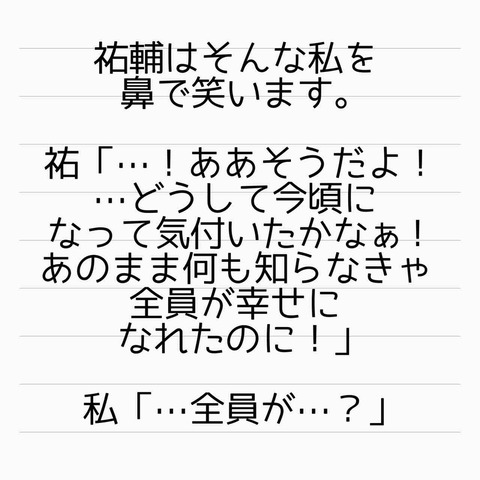 祐輔はそんな私を
鼻で笑います。
祐「…！ああそうだよ！
…どうして今頃に
なって気付いたかなぁ！
あのまま何も知らなきゃ
全員が幸せに
なれたのに！」
私「…全員が…？」